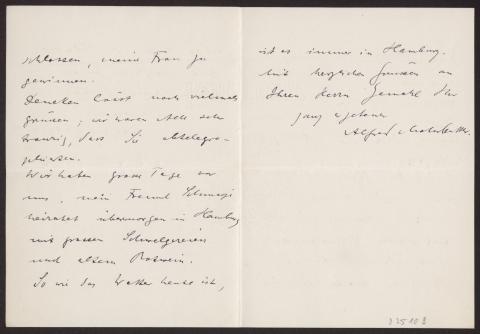 schlossen, meine Frau zu
gewinnen.
Deneken lässt noch vielmals
grüssen; wir waren alle sehr
traurig, dass Sie abtelegra-
phierten.
Wir haben grosse Tage vor
uns, mein Freund
heiratet übermorgen in Hamburg
mit grossen Schwelgereien
und altem Rotwein.
So wie das Wetter heute ist,
ist es immer in Hamburg.
Mit herzlichen Grüssen an
Ihren Herrn Gemahl Ihr
ganz ergebener
Alfred